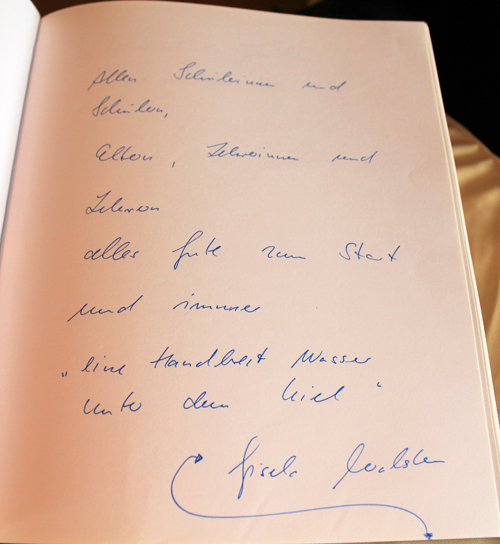 Allen Schülerinnen und
Schülern,
Eltern, Lehrerinnen und
Lehrern
alles gute zum Start
und immer
„eine Handbreit Wasser
unter dem Kiel“
Gisela